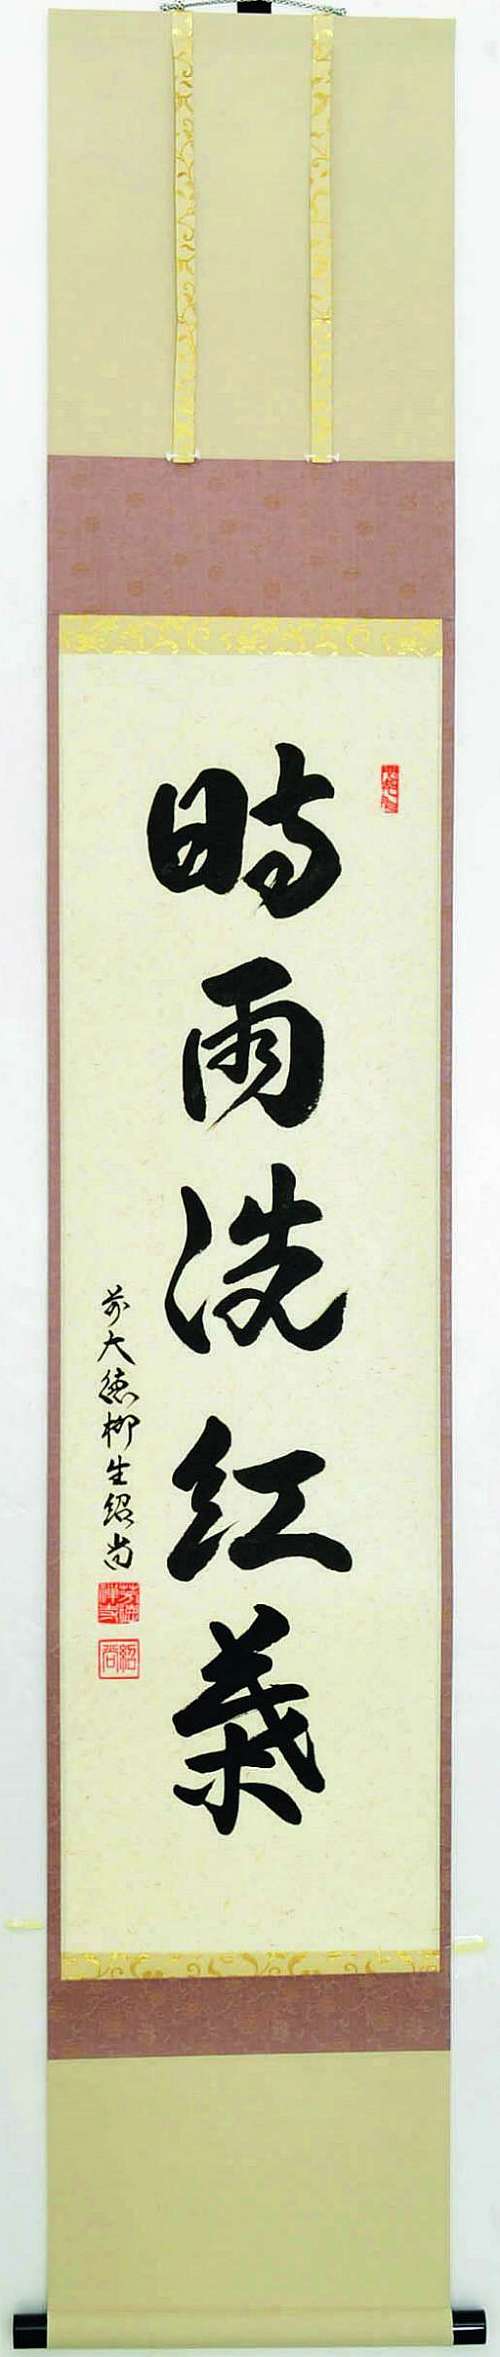 時雨洗紅葉
前大徳柳生紹尚